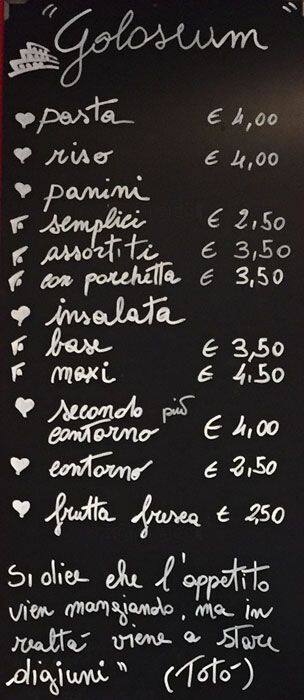 "Goloseum"
pasta € 4,00
riso € 4,00
panini
semplici € 2,50
assortiti € 3,50
con porchetta € 3,50
insalata
base € 3,50
maxi € 4.50
secondo più
contorno € 4,00
contorno € 2,50
frutta fresca € 2,50
Si dice che l'appetito
vien mangiando, ma in
realtà viene a stare
digiuni" (Totò)